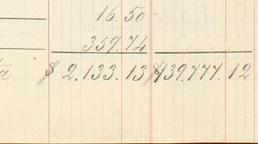 16.50
359.74
$ 2.133.13 $139.777.12